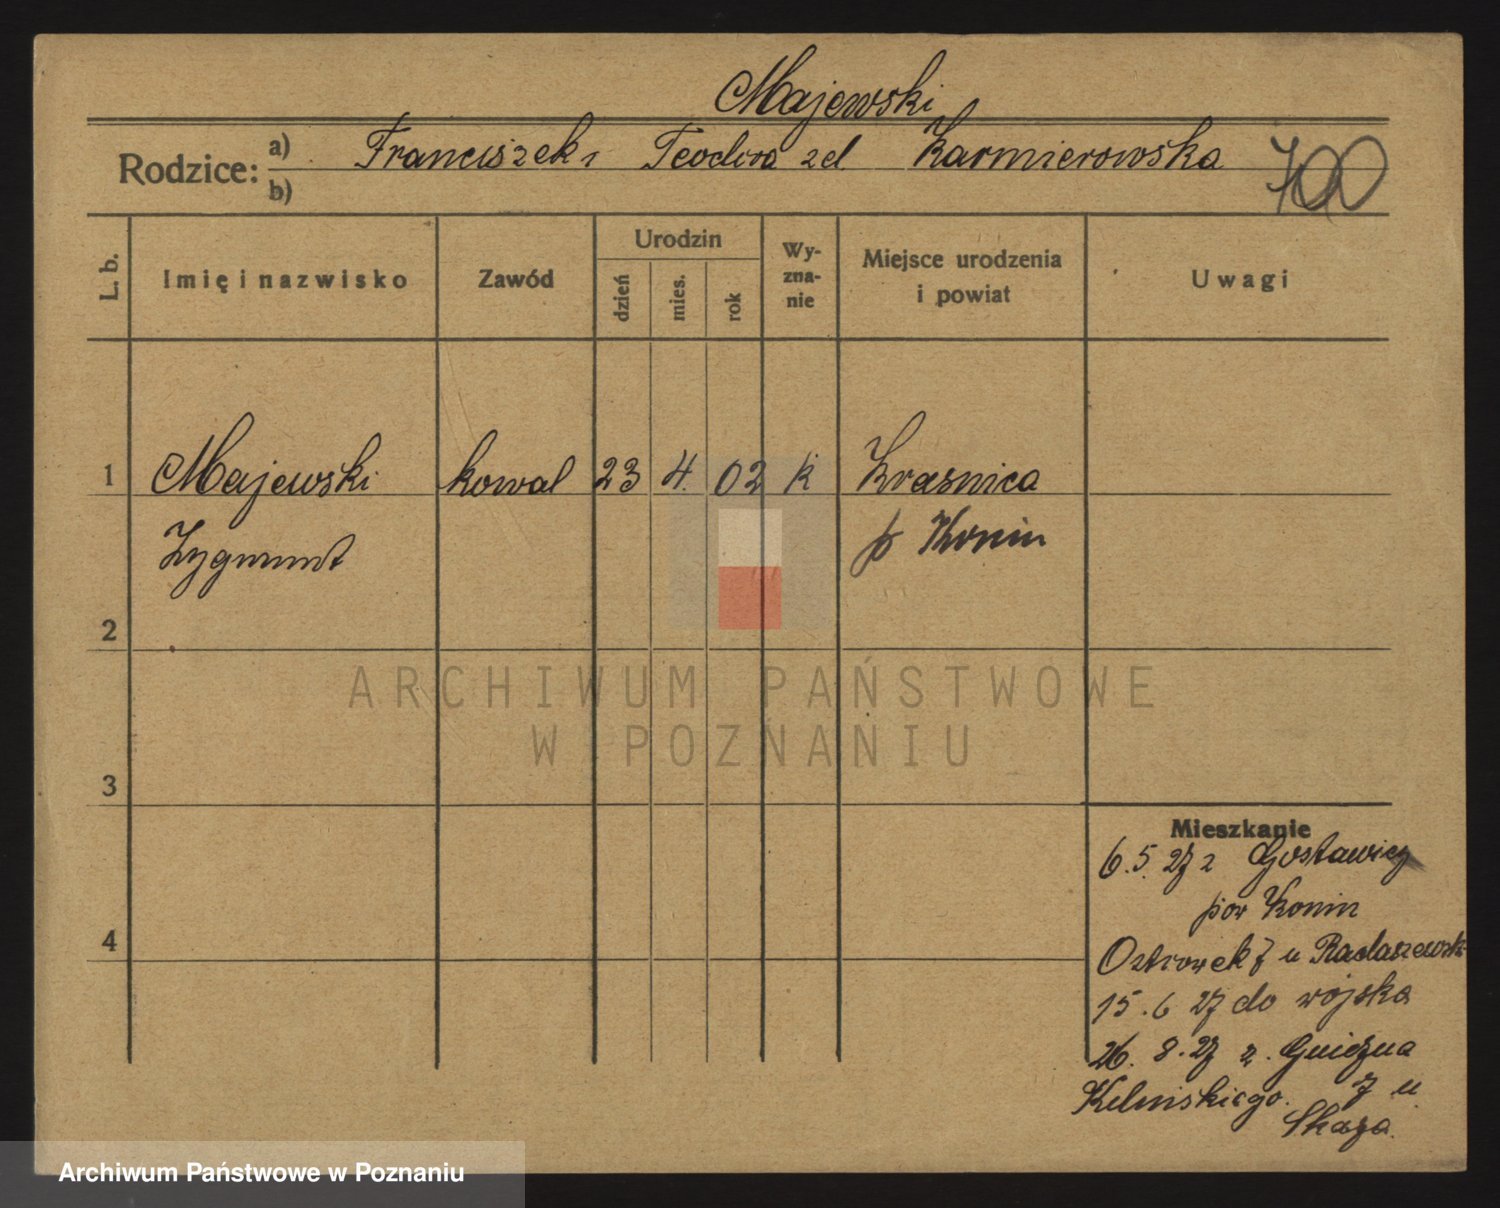 Majewski
Rodzice: a) Franciszek i Teodora zd Karmierowska 700
b)
L. b. Imię i nazwisko Zawód Urodzin dzień mies. rok Wyznanie Miejsce urodzenia i powiat Uwagi
1 Majewski kowal 23 4. 02 k Krasnica
Zygmunt p Konin
2
3
4
Mieszkanie
6.5.27 z Gosławicy
pow Konin
Ostrówek 7 u
15.6 27 do wojska
26. 8. 27 z. Gniezna
7 u
Skaza.
ARCHIWUM PAŃSTWOWE
W POZNANIU
Archiwum Państwowe w Poznaniu